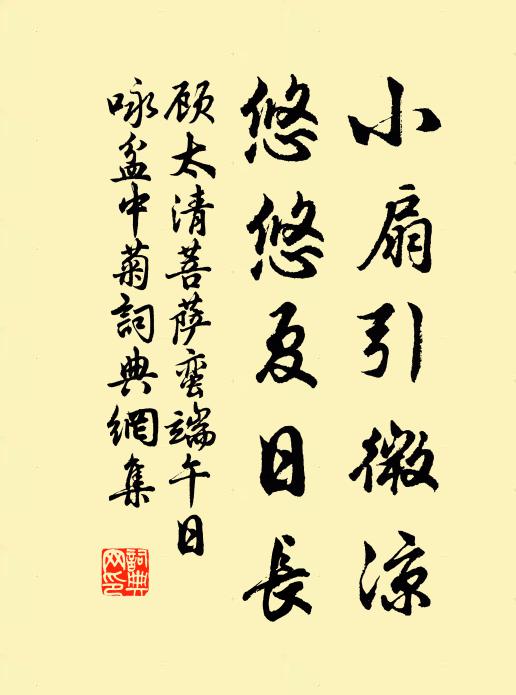 小扇引微凉
悠悠夏日長
顾太清菩萨蛮端午日
咏盆中菊詞典網集
詞典
网印